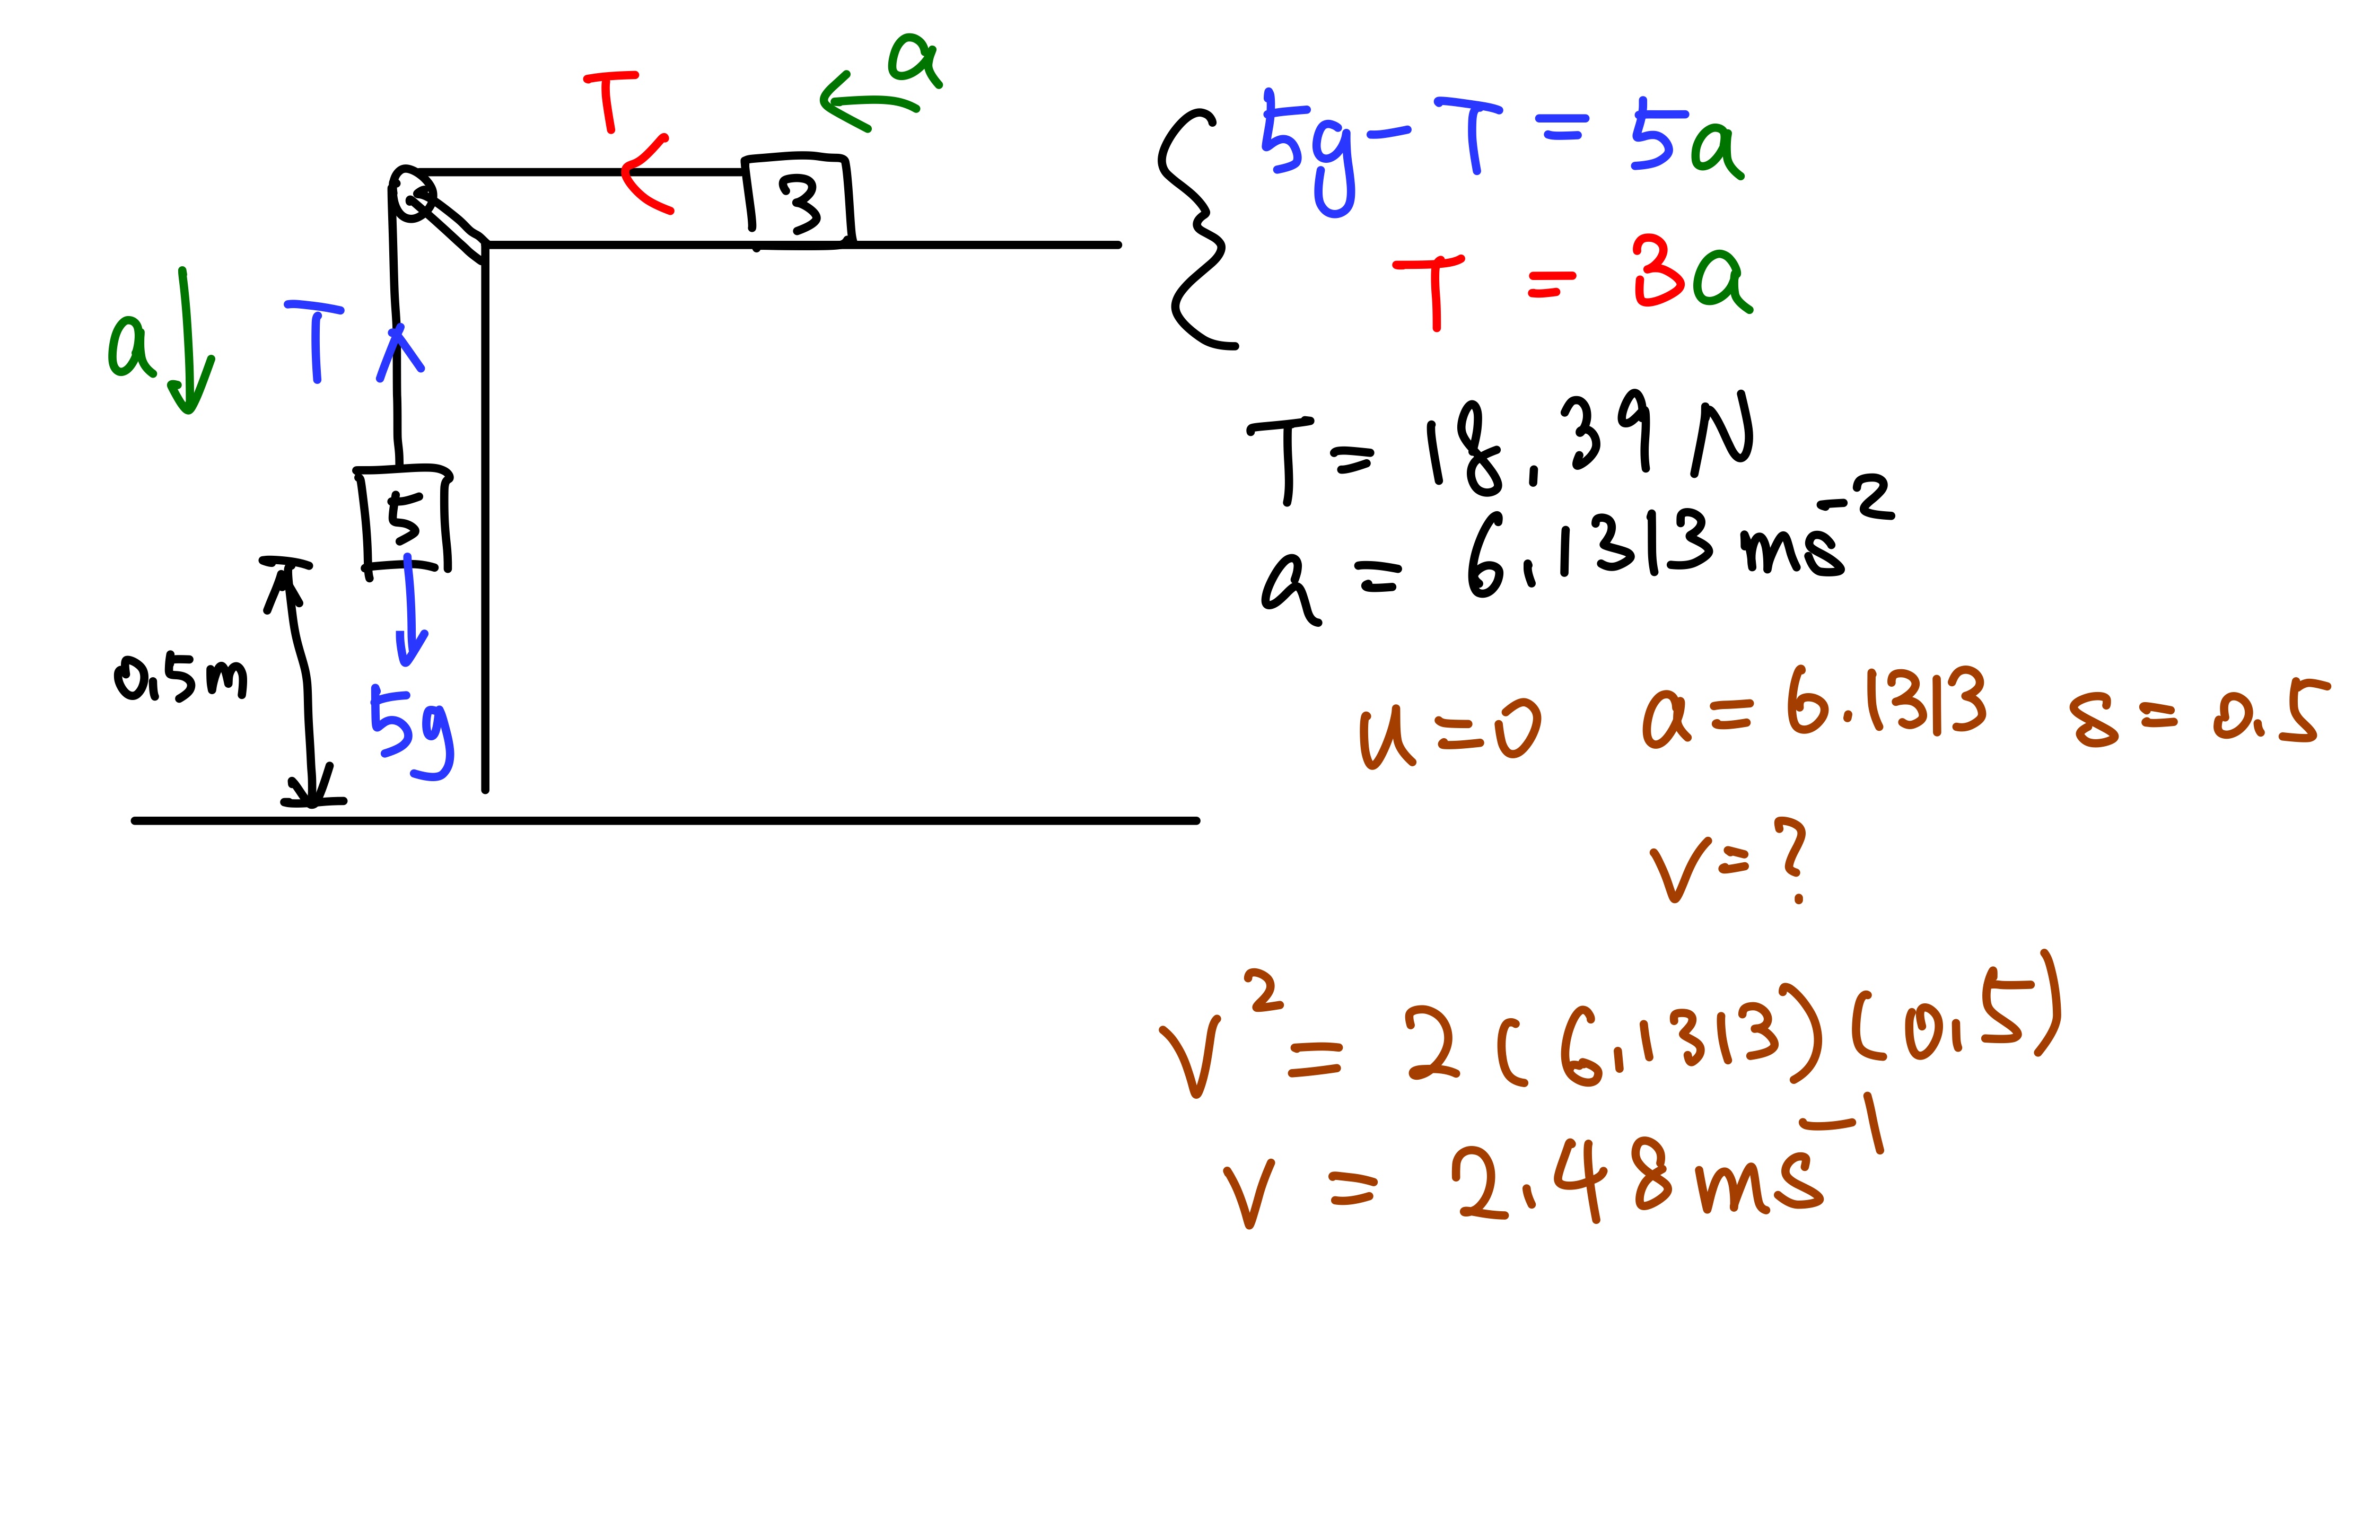 T
a
3
a
T
5
0.5m
5g
5g - T = 5a
T = 3a
T = 18.39 N
a = 6.1313 ms⁻²
u = 0 a = 6.1313 s = 0.5
v = ?
v² = 2(6.1313)(0.5)
v = 2.48 ms⁻¹